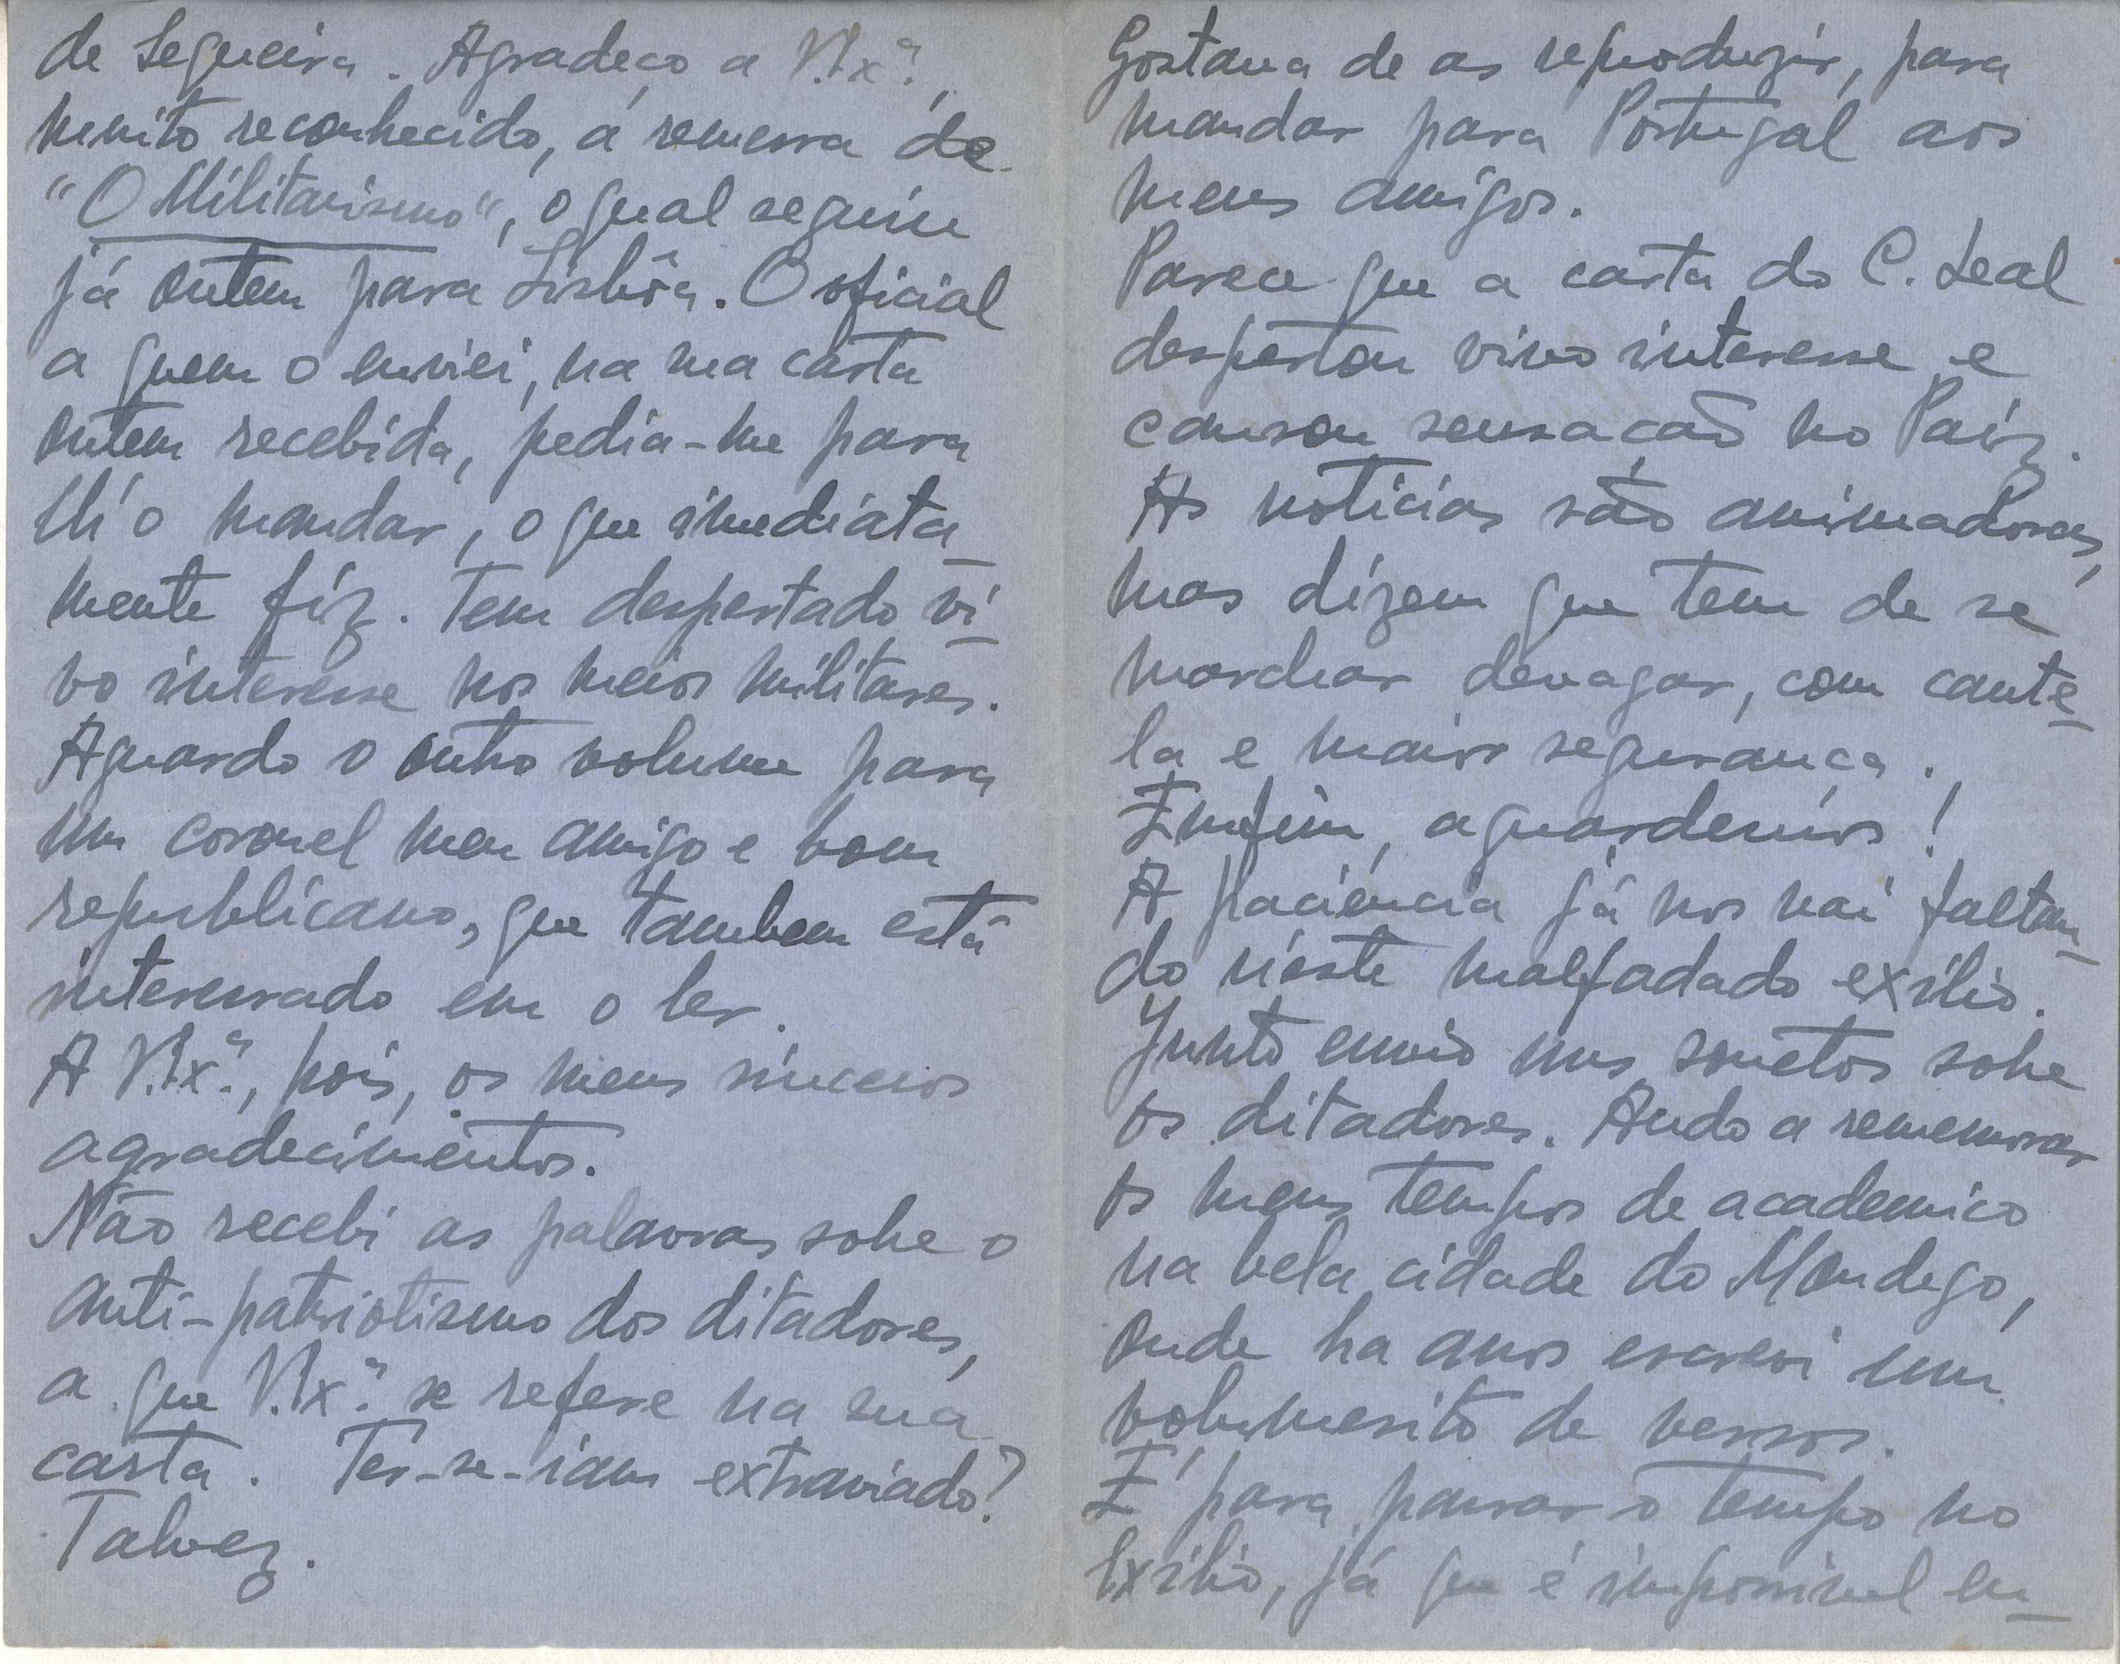 de Segueira. Agradeço a V.Ex.ª,
muito reconhecido, á remessa de
"O Militarismo", o qual seguiu
já ontem para Lisbôa. O oficial
a quem o enviei, na sua carta
ontem recebida, pedia-me para
lh'o mandar, o que imediata-
mente fiz. Tem despertado vi-
vo interesse nos meios militares.
Aguardo o outro volume para
um coronel meu amigo e bom
republicano, que tambem está
interessado em o ler.
A V.Ex.ª, pois, os meus sinceros
agradecimentos.
Não recebi as palavras sobre o
anti-patriotismo dos ditadores,
a que V.Ex.ª se refere na sua
carta. Ter-se-iam extraviado?
Talvez.
Gostava de as reproduzir, para
mandar para Portugal aos
meus amigos.
Parece que a carta do C. Leal
despertou vivo interesse e
causou sensação no Paíz.
As noticias são animadoras,
mas dizem que tem de se
marchar devagar, com caute-
la e maior segurança.
Emfim, aguardemos!
A paciência já nos vai faltan-
do n'este malfadado exilio.
Junto envio uns sonetos sobre
os ditadores. Ando a rememorar
os meus tempos de academico
na bela cidade do Mondego,
onde ha anos escrevi um
volumesito de versos.
É para passar o tempo no
Exilio, já que é impossivel en-